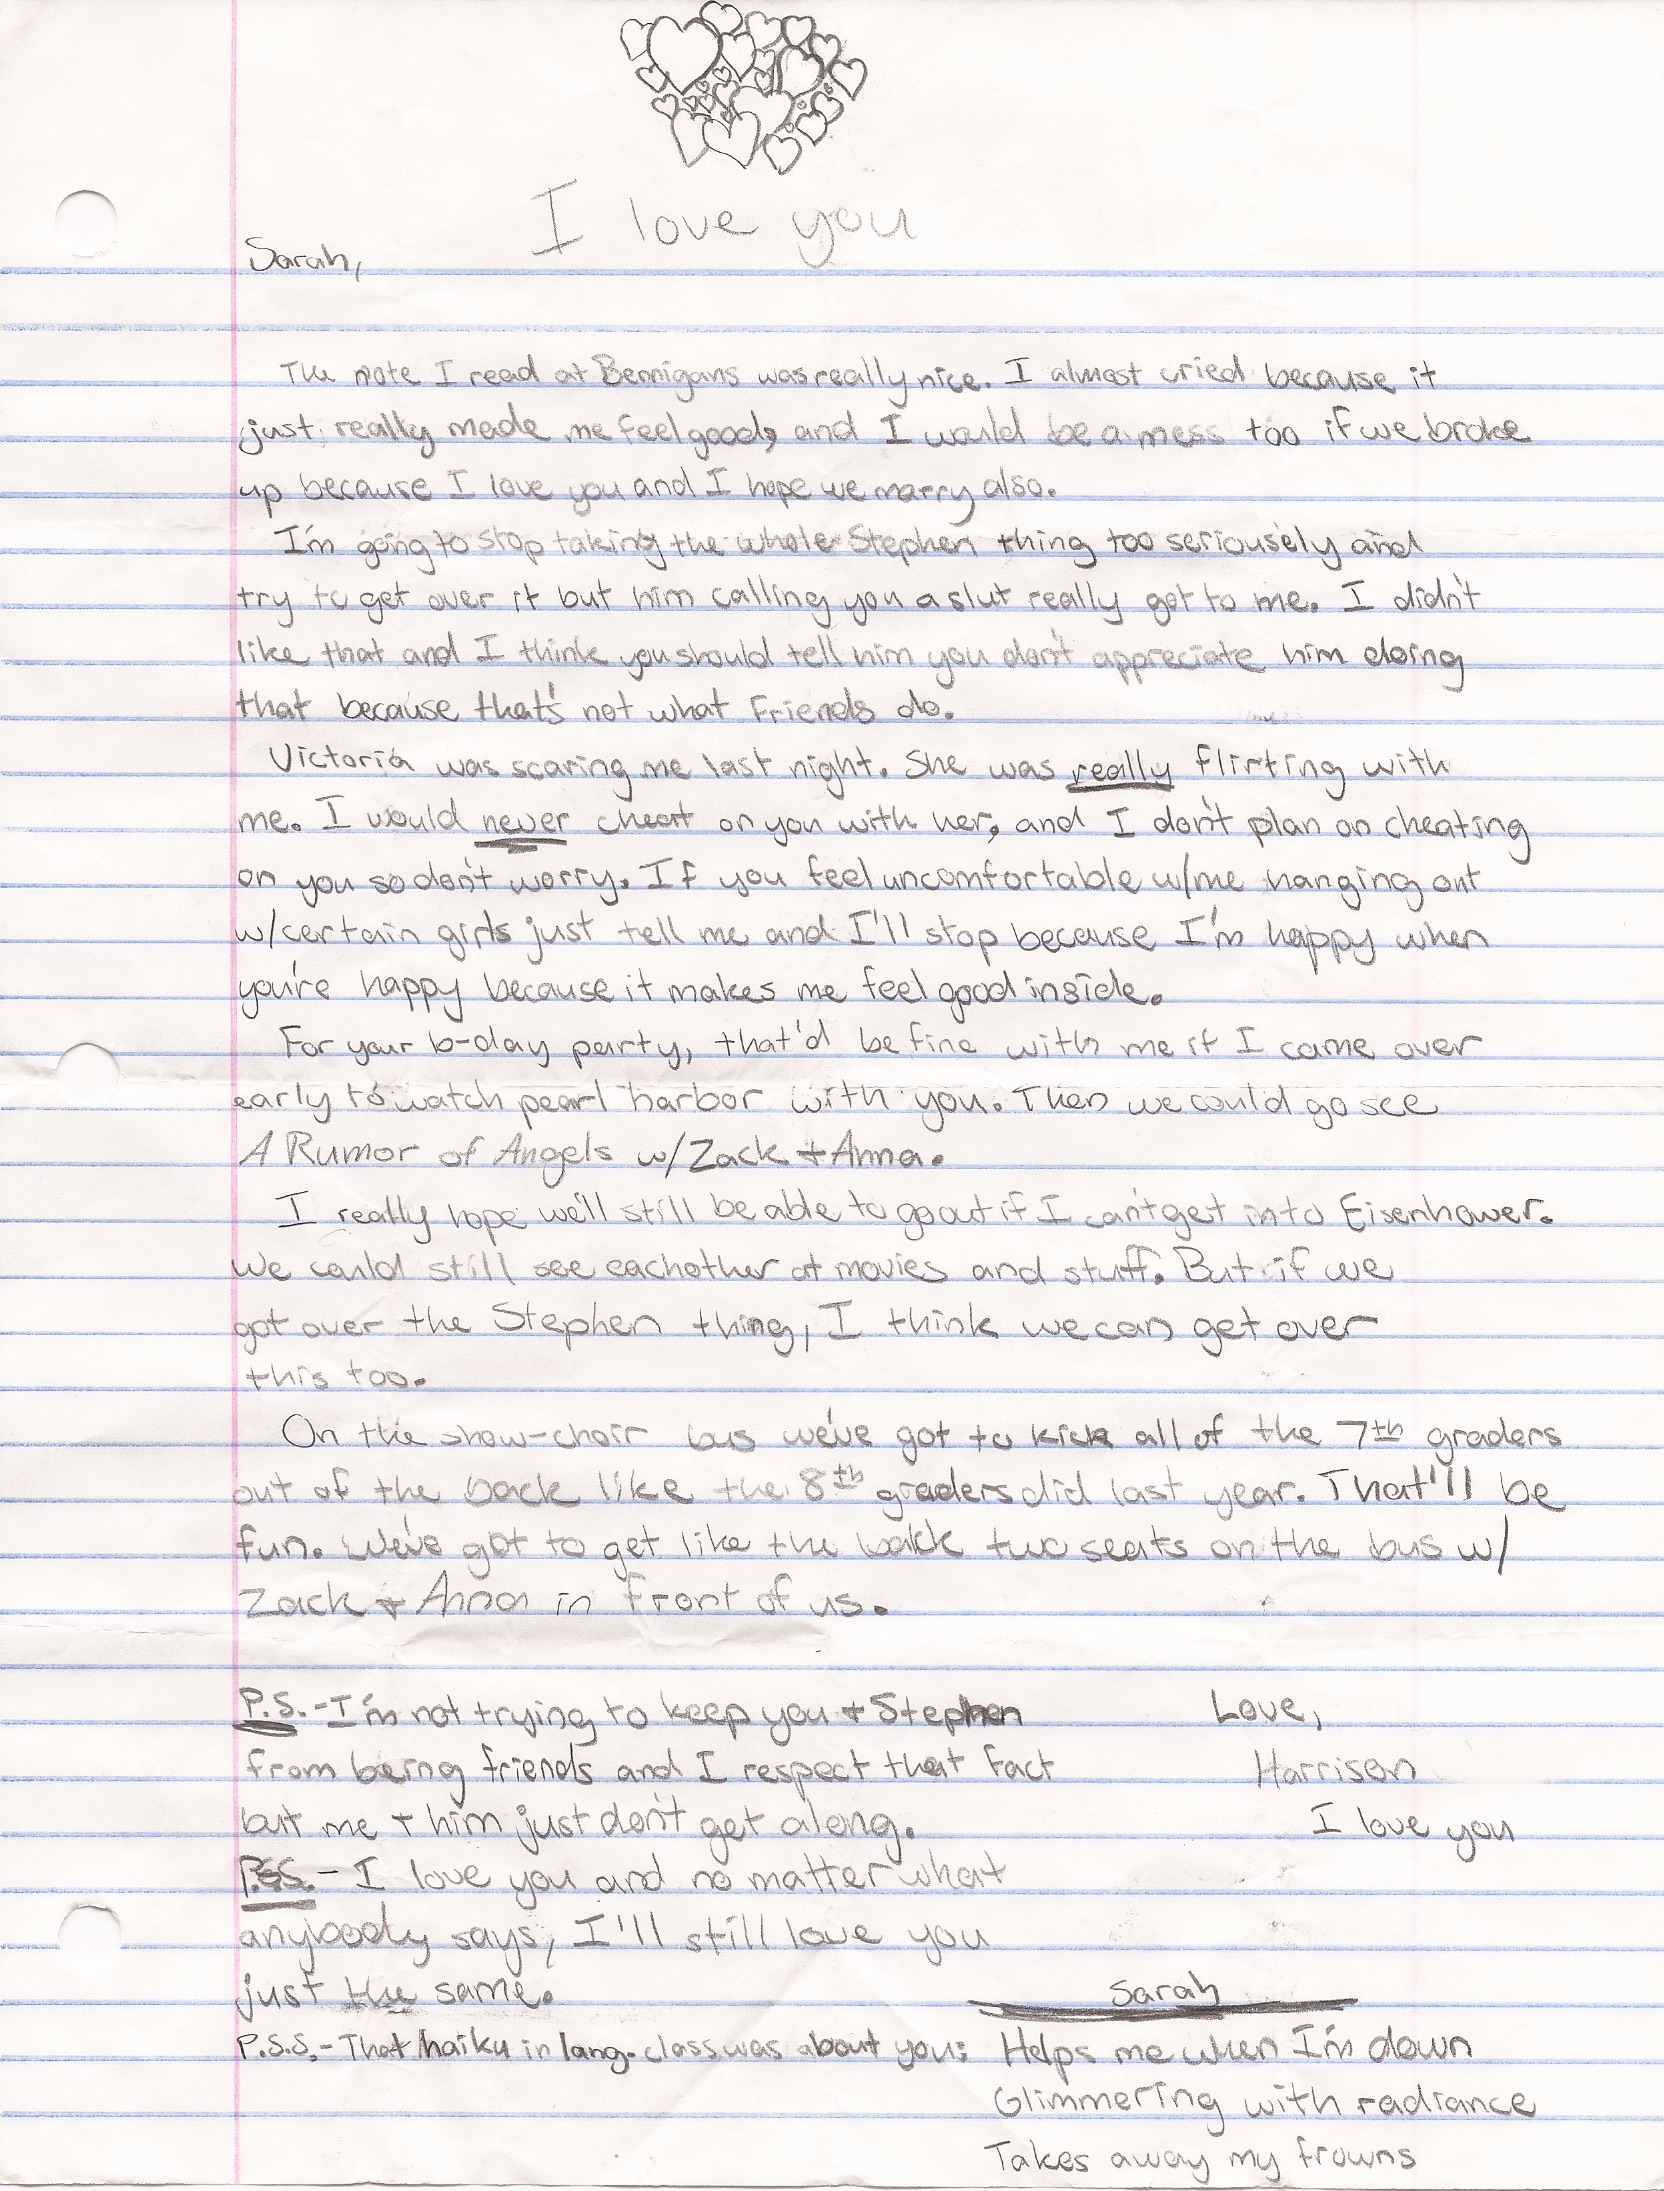 I love you
Sarah,
The note I read at Bennigans was really nice. I almost cried because it
just really made me feel good, and I would be a mess too if we broke
up because I love you and I hope we marry also.
I'm going to stop taking the whole Stephen thing too seriousely and
try to get over it but him calling you a slut really got to me. I didn't
like that and I think you should tell him you don't appreciate him doing
that because that's not what friends do.
Victoria was scaring me last night. She was really flirting with
me. I would never cheat on you with her, and I don't plan on cheating
on you so don't worry. If you feel uncomfortable w/me hanging out
w/certain girls just tell me and I'll stop because I'm happy when
you're happy because it makes me feel good inside.
For your b-day party, that'd be fine with me if I came over
early to watch pearl harbor with you. Then we could go see
A Rumor of Angels w/Zack + Anna.
I really hope we'll still be able to go out if I can't get into Eisenhower.
We could still see eachother at movies and stuff. But if we
got over the Stephen thing, I think we can get over
this too.
On the show-choir bus we've got to kick all of the 7th graders
out of the back like the 8th graders did last year. That'll be
fun. We've got to get like the back two seats on the bus w/
Zack + Anna in front of us.
P.S.-I'm not trying to keep you + Stephen
from being friends and I respect that fact
but me + him just don't get along.
Love,
Harrison
I love you
P.S.S.- I love you and no matter what
anybody says, I'll still love you
just the same.
P.S.S.- That haiku in lang. class was about you:
Sarah
Helps me when I'm down
Glimmering with radiance
Takes away my frowns